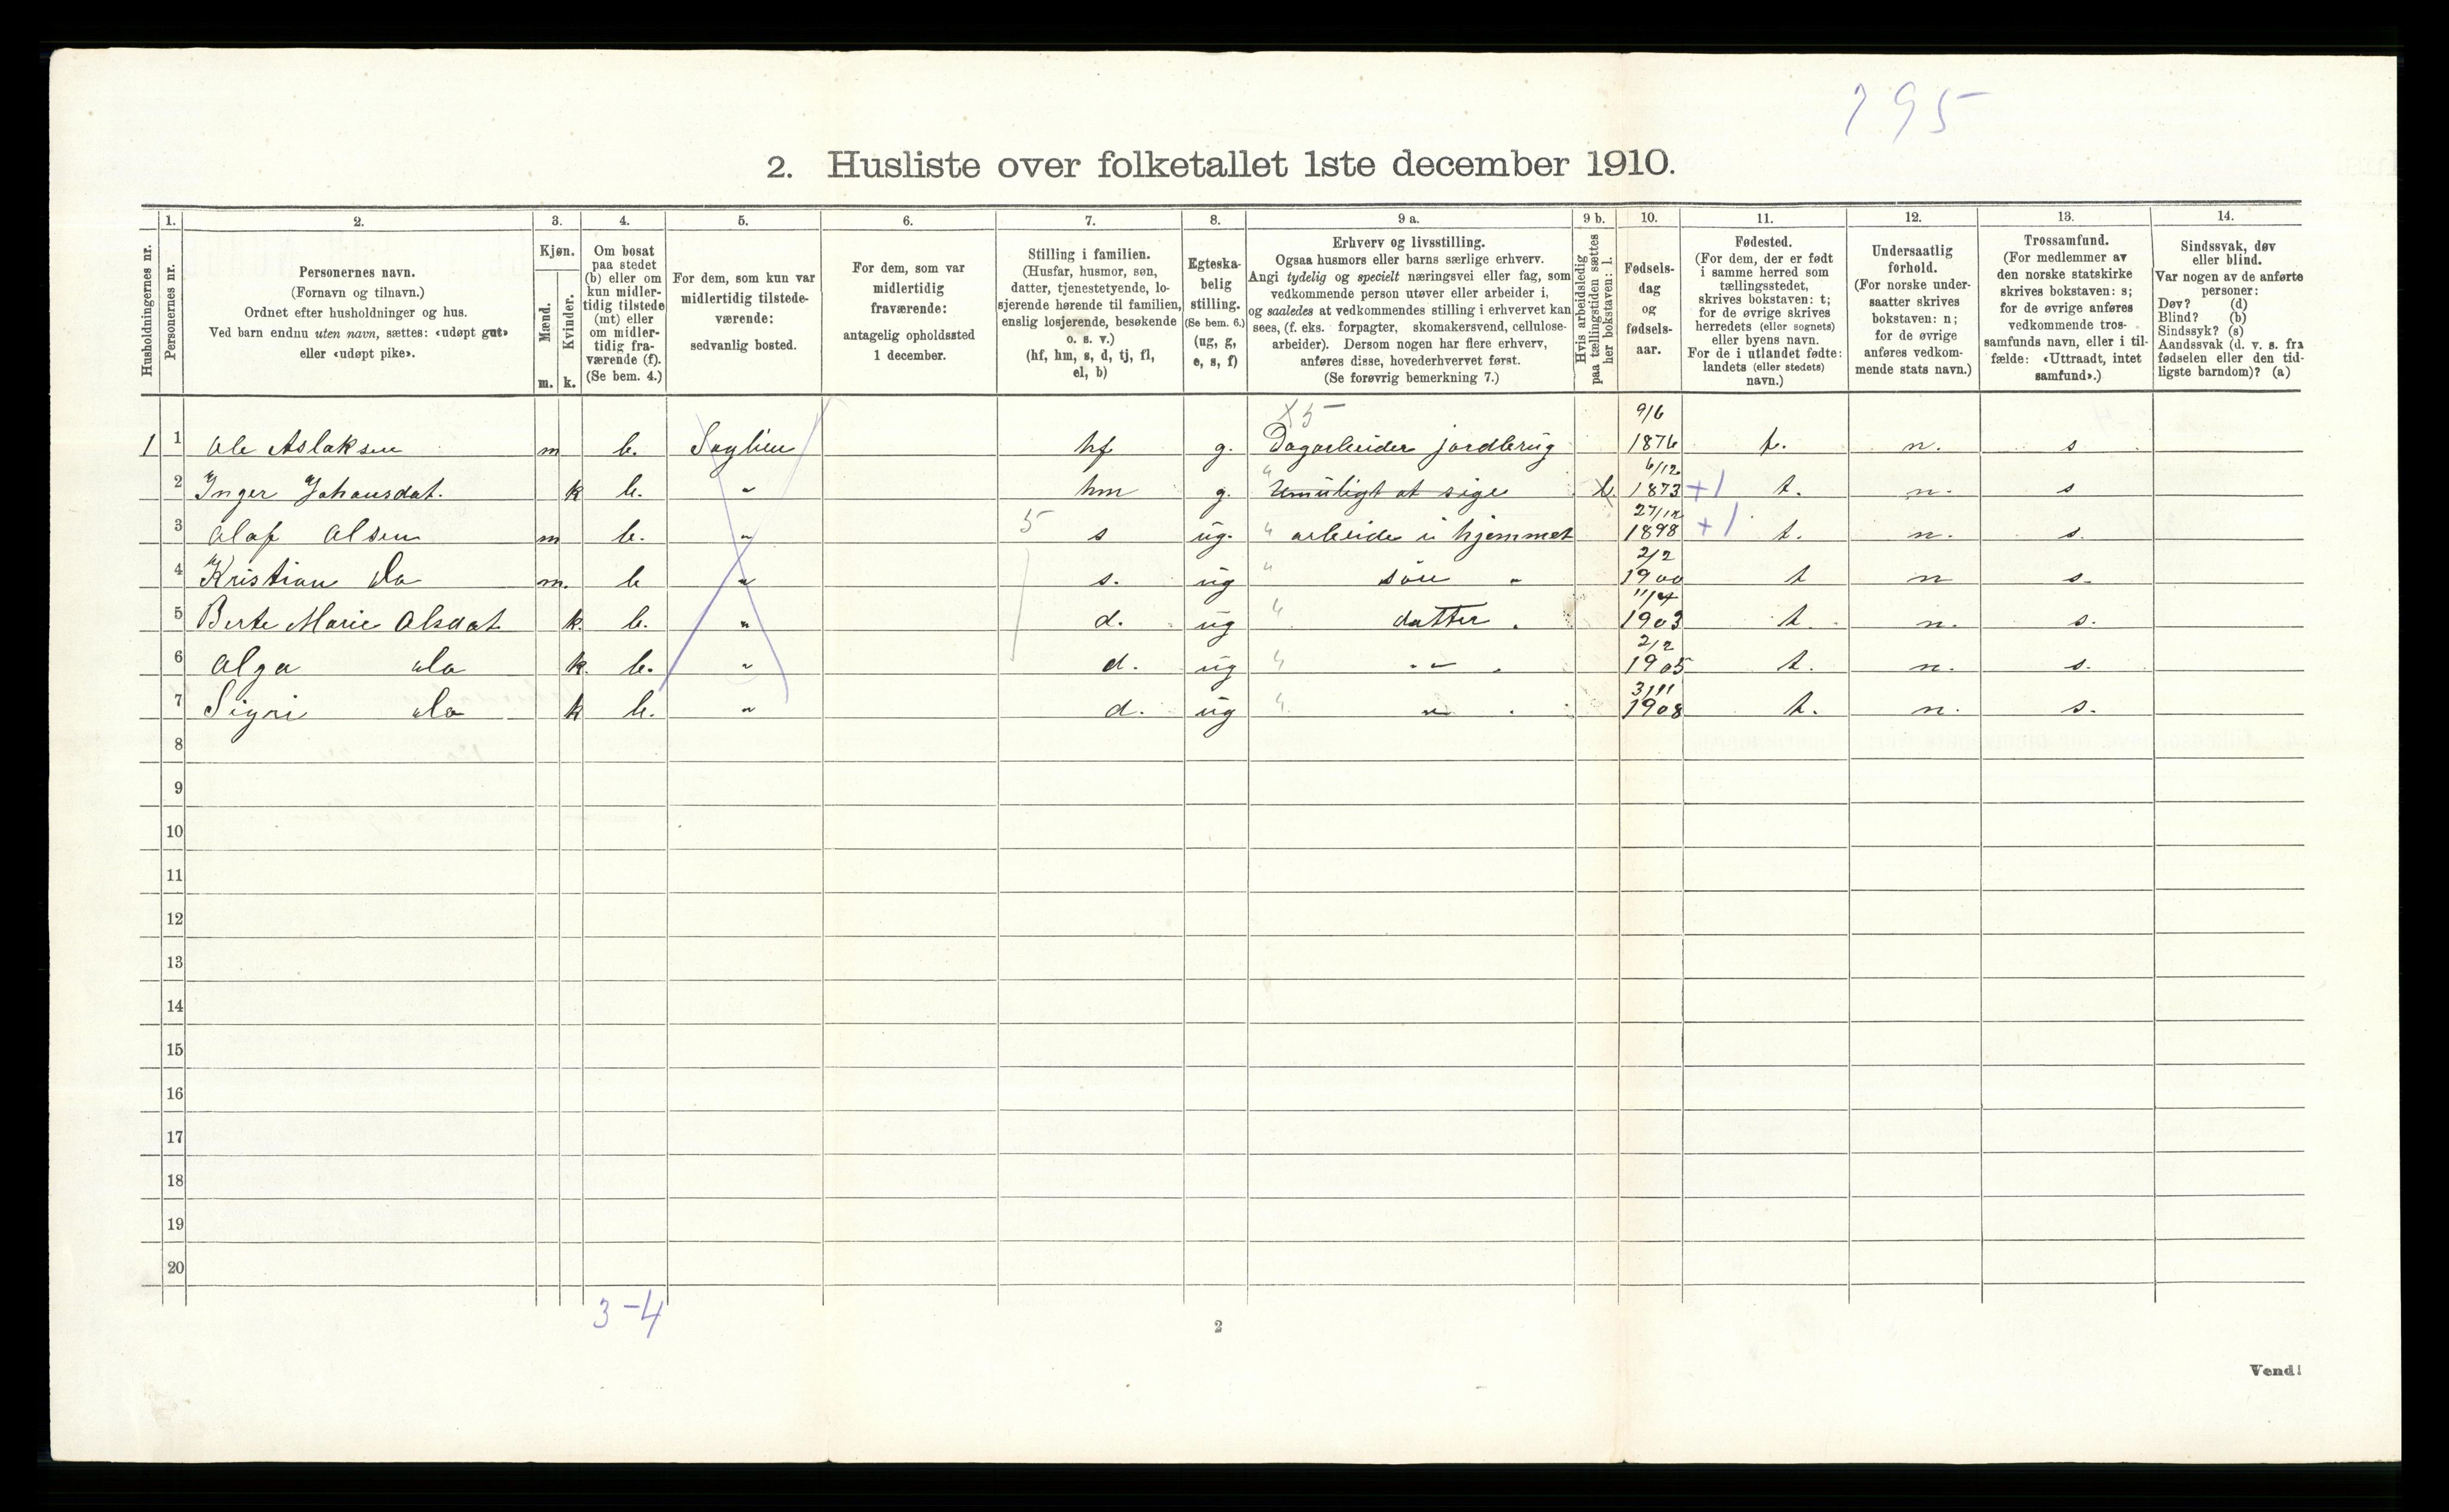 295
2. Husliste over folketallet 1ste december 1910.
Husholdningernes nr.
1.
Personernes nr.
2.
Personernes navn.
(Fornavn og tilnavn.)
Ordnet efter husholdninger og hus.
Ved barn endnu uten navn, sættes: «udøpt gut»
eller «udøpt pike».
3.
Kjøn.
Mænd.
Kvinder.
m. k.
4.
Om bosat
paa stedet
(b) eller om
kun midler-
tidig tilstede
(mt) eller
om midler-
tidig fra-
værende (f).
(Se bem. 4.)
5.
For dem, som kun var
midlertidig tilstede-
værende:
sedvanlig bosted.
6.
For dem, som var
midlertidig
fraværende:
antagelig opholdssted
1 december.
7.
Stilling i familien.
(Husfar, husmor, søn,
datter, tjenestetyende, lo-
sjerende hørende til familien,
enslig losjerende, besøkende
o. s. v.)
(hf, hm, s, d, tj, fl,
el, b)
8.
Egteska-
belig
stilling.
(Se bem. 6.)
(ug, g,
e, s, f)
9 a.
Erhverv og livsstilling.
Ogsaa husmors eller barns særlige erhverv.
Angi tydelig og specielt næringsvei eller fag, som
vedkommende person utøver eller arbeider i,
og saaledes at vedkommendes stilling i erhvervet kan
sees, (f. eks. forpagter, skomakersvend, cellulose-
arbeider). Dersom nogen har flere erhverv,
anføres disse, hovederhvervet først.
(Se forøvrig bemerkning 7.)
9 b.
Hvis arbeidsledig
paa tællingstiden sættes
her bokstaven: l.
10.
Fødsels-
dag
og
fødsels-
aar.
11.
Fødested.
(For dem, der er født
i samme herred som
tællingsstedet,
skrives bokstaven: t;
for de øvrige skrives
herredets (eller sognets)
eller byens navn.
For de i utlandet fødte:
landets (eller stedets)
navn.)
12.
Undersaatlig
forhold.
(For norske under-
saatter skrives
bokstaven: n;
for de øvrige
anføres vedkom-
mende stats navn.)
13.
Trossamfund.
(For medlemmer av
den norske statskirke
skrives bokstaven: s;
for de øvrige anføres
vedkommende tros-
samfunds navn, eller i til-
fælde: «Uttraadt, intet
samfund».)
14.
Sindssvak, døv
eller blind.
Var nogen av de anførte
personer:
Døv? (d)
Blind? (b)
Sindssyk? (s)
Aandssvak (d. v. s. fra
fødselen eller den tid-
ligste barndom)? (a)
X5
1 1 Ole Aslaksen m b. Saglien hf g. Dagarbeider jordbrug 9/6 1876 t. n. s
2 Inger Johansdat. k b. " hm g. " Umuligt at sige l. 6/12 1873 +1 t. n. s
3 Olaf Olsen m b. " 5 s ug. " arbeide i hjemmet 27/12 1898 +1 t. n. s.
4 Kristian do m. b " s. ug " søn " 2/2 1900 t n s.
5 Berte Marie Olsdat k. b. " d. ug " datter " 11/4 1903 t. n. s.
6 Olga do k. b. " d. ug " " " 2/2 1905 t. n. s.
7 Signi do k b. " d. ug " " " 3/11 1908 t. n. s.
8
9
10
11
12
13
14
15
16
17
18
19
20
3-4
2
Vend!